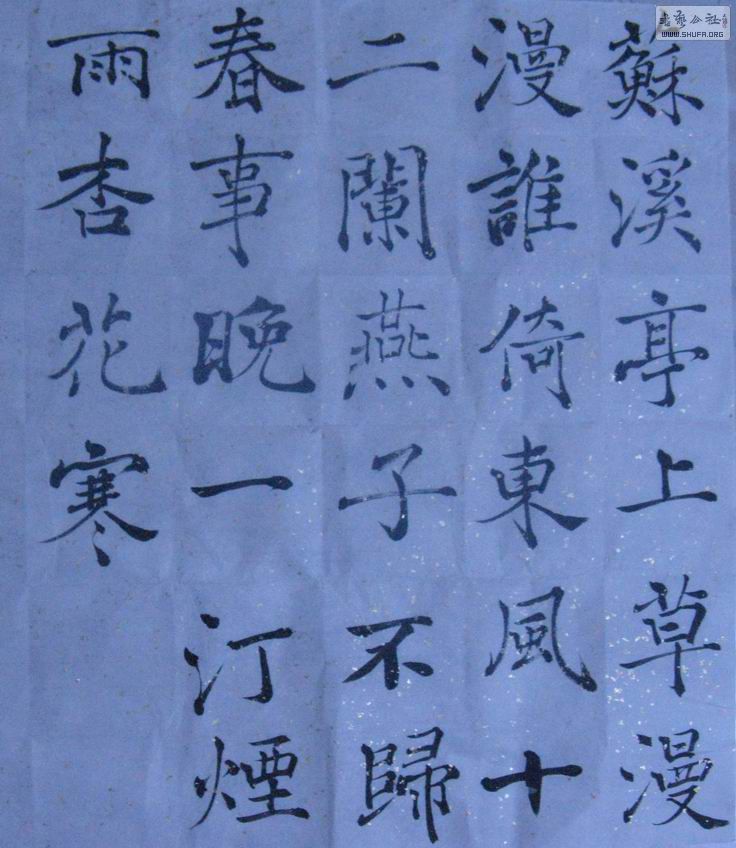 蘇溪亭上草漫
漫誰倚東風十
二闌燕子不歸
春事晚一汀煙
雨杏花寒
WWW.SHUFA.ORG